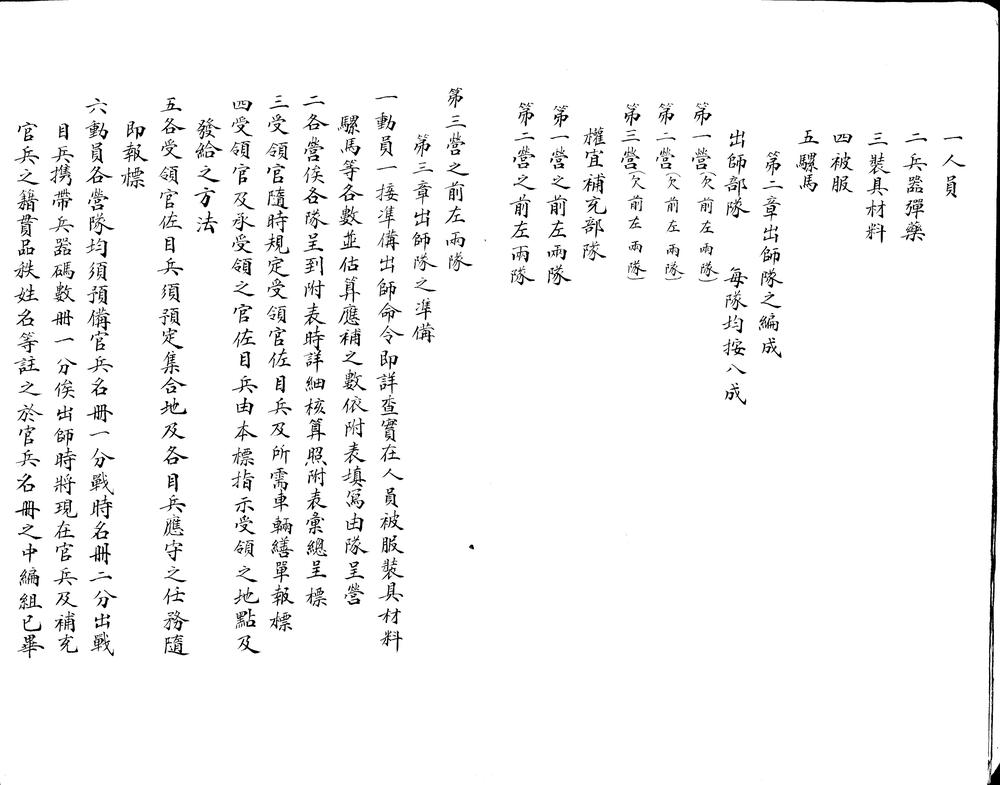 一人員
二兵器彈藥
三裝具材料
四被服
五騾馬
第二章出師隊之編成
出師部隊 每隊均按八成
第一營(欠前左兩隊)
第二營(欠前左兩隊)
第三營(欠前左兩隊)
權宜補充部隊
第一營之前左兩隊
第二營之前左兩隊
第三營之前左兩隊
第三章出師隊之準備
一動員一接準備出師命令即詳查實在人員被服裝具材料
騾馬等各數並估算應補之數依附表填寫由隊呈營
二各營俟各隊呈到附表時詳細核算照附表彙總呈標
三受領官隨時規定受領官佐目兵及所需車輛繕單報標
四受領官及承受領之官佐目兵由本標指示受領之地點及
發給之方法
五各受領官佐目兵須預定集合地及各目兵應守之任務隨
即報標
六動員各營隊均須預備官兵名冊一分戰時名冊二分出戰
目兵携帶兵器碼數冊一分俟出師時將現在官兵及補充
官兵之籍貫品秩姓名等註之於官兵名冊之中編組已畢